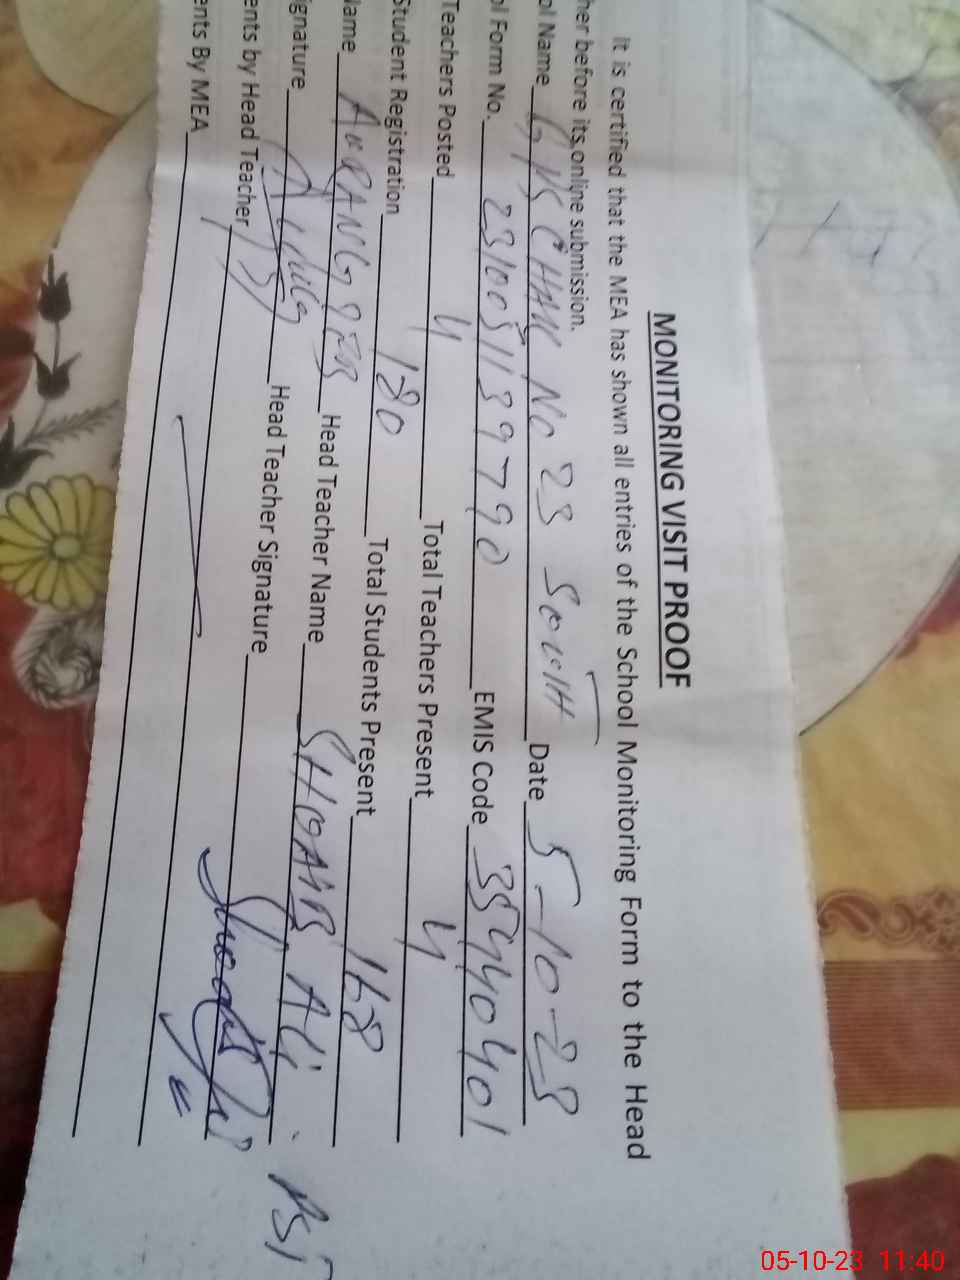 MONITORING VISIT PROOF
It is certified that the MEA has shown all entries of the School Monitoring Form to the Head
her before its online submission.
ol Name GPS CHAK NO 23 SOUTH Date 5-10-23
ol Form No. EMIS Code 38440401
Teachers Posted 4 Total Teachers Present 4
Student Registration 180 Total Students Present 168
Name AURANGZEB Head Teacher Name SHOAIB ALI. PST
ignature Head Teacher Signature
ents by Head Teacher
ents By MEA
05-10-23 11:40